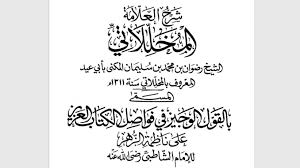 شرح العلامة
المخللاتي
الشيخ رضوان بن محمد بن سليمان المكنى بأبي عيد
المعروف بالمخللاتي سنة ١٣١١ھ
المسمى
بالقول الوجيز في فواصل الكتاب العزيز
على ناظمة الزهر
للإمام الشاطبي رضي الله عنه